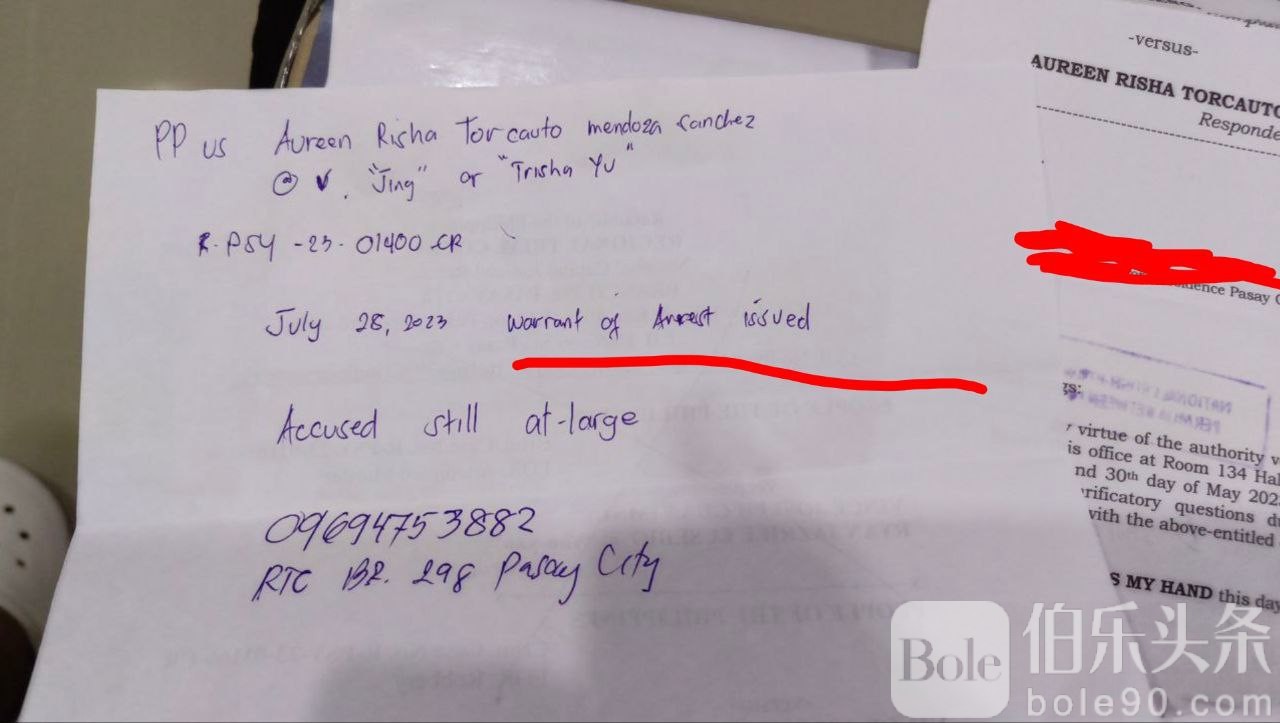 PP vs Aureen Risha Torcauto mendoza sanchez
@ "Jing" or "Trisha Yu"
R-PSY-23-01400-CR
July 28, 2023 Warrant of Arrest issued
Accused still at-large
09694753882
RTC BR. 298 Pasay City
-versus-
AUREEN RISHA TORCAUTO
Responde
Pasay C
rs:
virtue of the authority v
is office at Room 134 Hal
nd 30th day of May 202
rificatory questions d
with the above-entitled
S MY HAND this day
Bole 伯乐头条
bole90.com